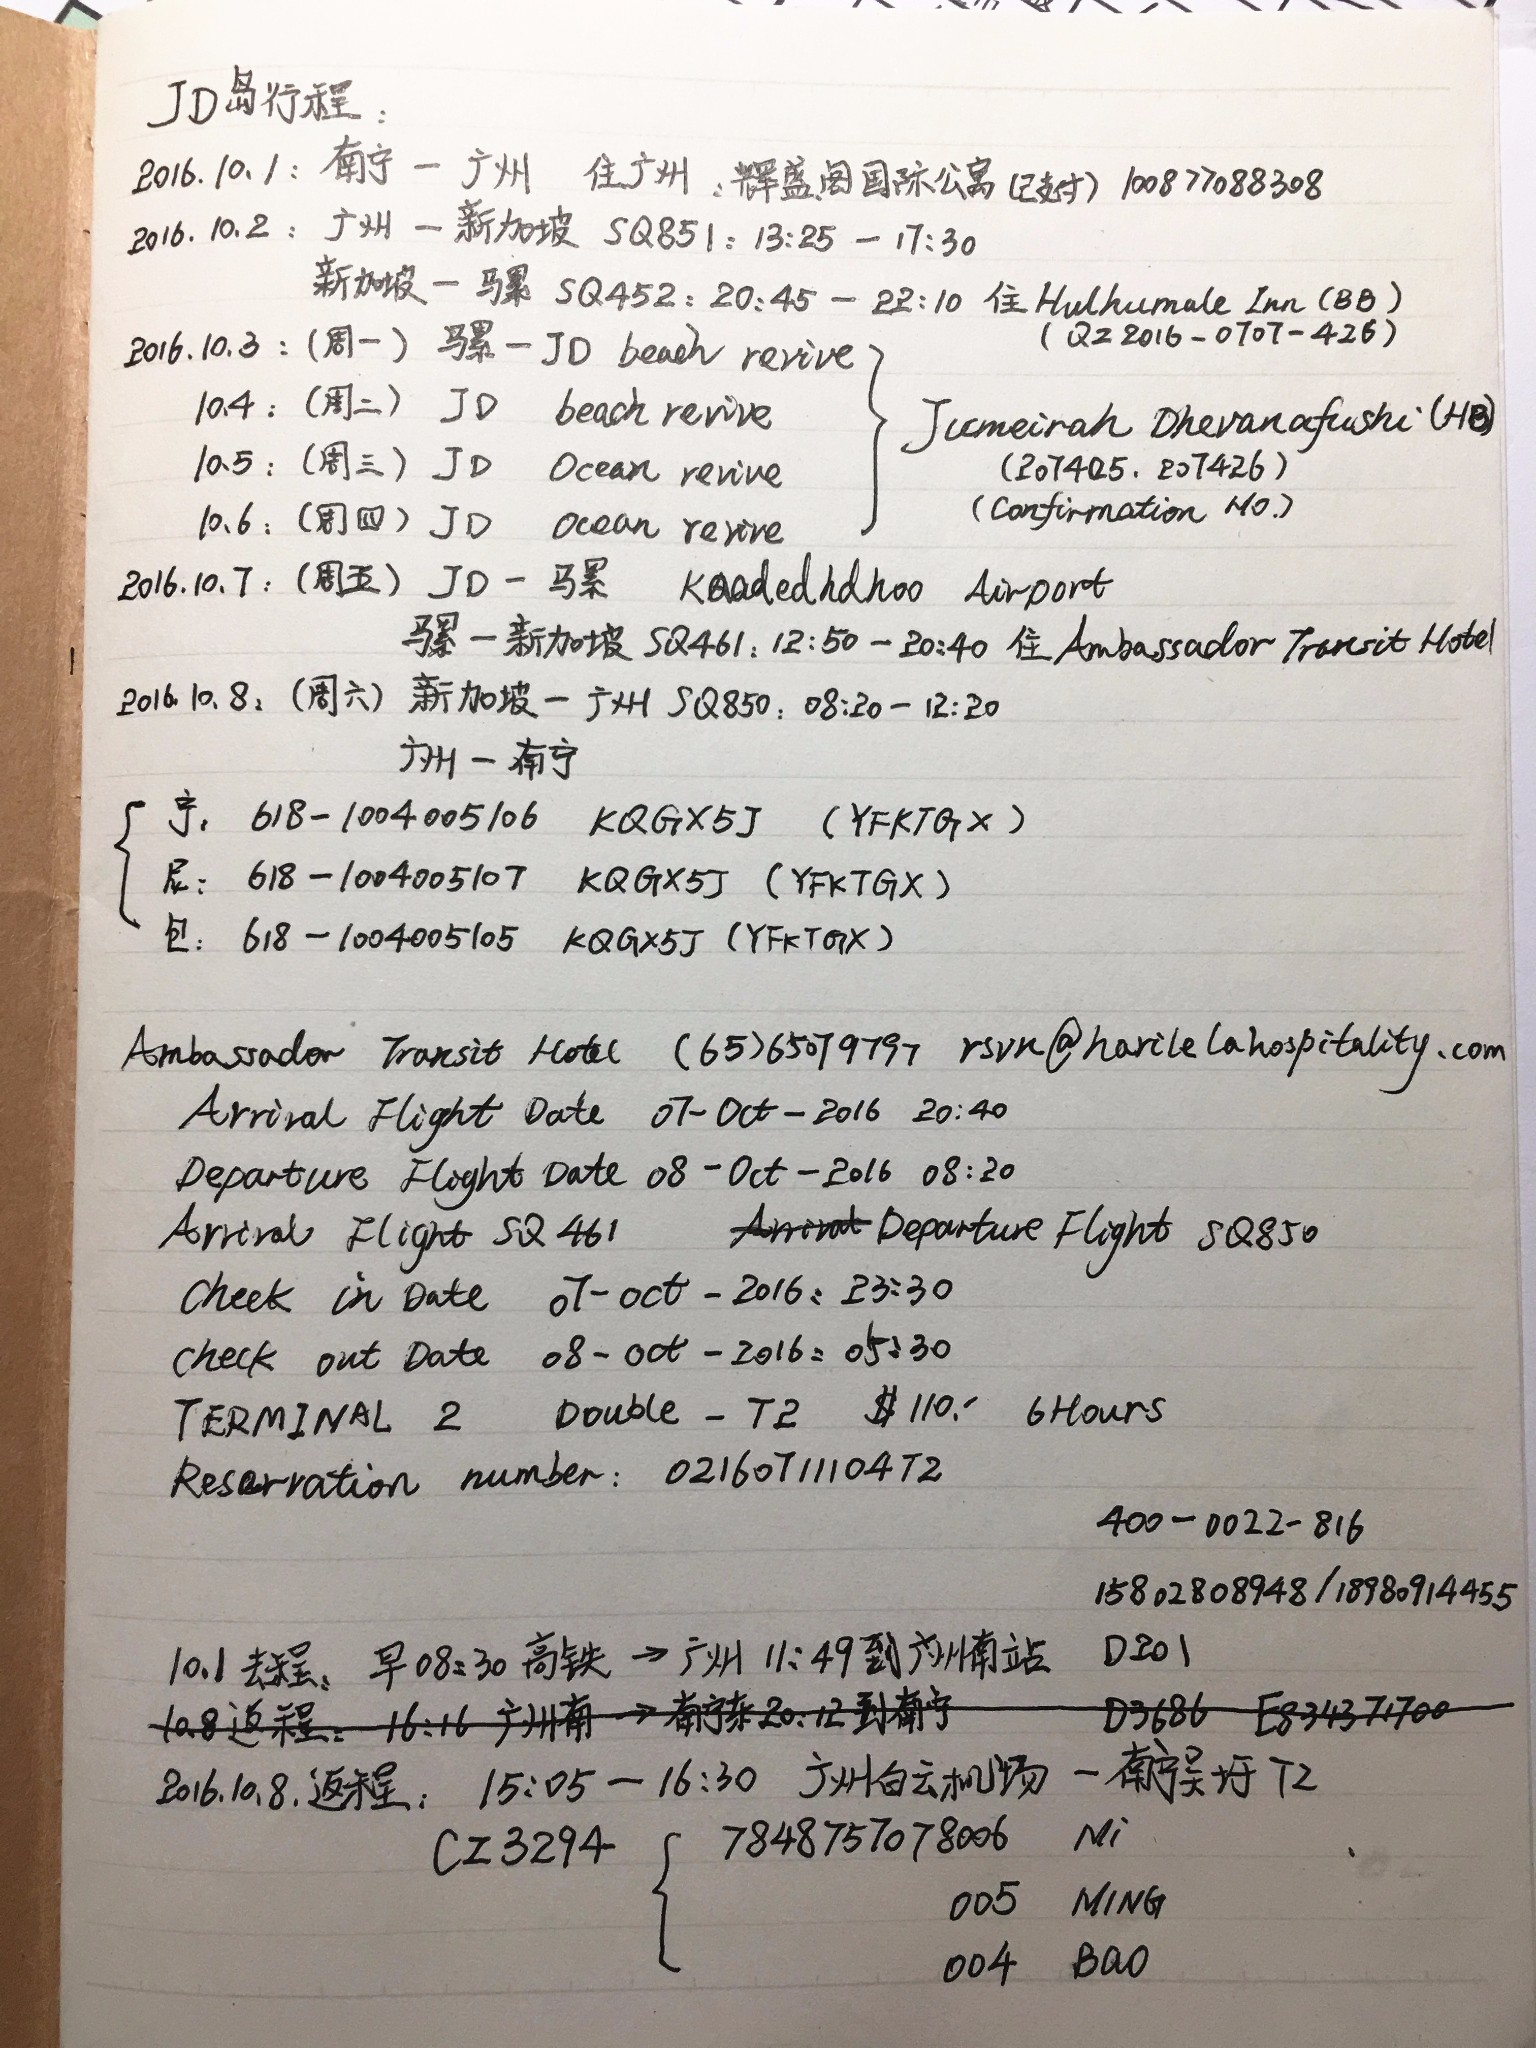 JD岛行程：
2016.10.1：南宁－广州 住广州：辉盛阁国际公寓(已支付) 100877088308
2016.10.2：广州－新加坡 SQ851：13:25－17:30
新加坡－马累 SQ452：20:45－22:10 住Hulhumale Inn (BB)
(QZ2016-0707-426)
2016.10.3：(周一) 马累－JD beach revive
10.4：(周二) JD beach revive
10.5：(周三) JD Ocean revive
10.6：(周四) JD ocean revive
Jumeirah Dhevanafushi (HB)
(207425. 207426)
(Confirmation No.)
2016.10.7：(周五) JD－马累 Kaadedhdhoo Airport
马累－新加坡 SQ461：12:50－20:40 住 Ambassador Transit Hotel
2016.10.8：(周六) 新加坡－广州 SQ850：08:20－12:20
广州－南宁
宁：618-1004005106 KQGX5J (YFKTGX)
尼：618-1004005107 KQGX5J (YFKTGX)
包：618-1004005105 KQGX5J (YFKTGX)
Ambassador Transit Hotel (65)65079797 rsvn@harilelahospitality.com
Arrival Flight Date 07-Oct-2016 20:40
Departure Flight Date 08-Oct-2016 08:20
Arrival Flight SQ461 Arrival Departure Flight SQ850
Check in Date 07-oct-2016: 23:30
check out Date 08-oct-2016: 05:30
TERMINAL 2 Double - T2 $110.- 6Hours
Reservation number: 02160711104T2
400-0022-816
15802808948/18980914455
10.1去程：早08:30高铁→广州 11:49到广州南站 D201
10.8返程：16:16 广州南→南宁东20:12到南宁 D3686 E834371700
2016.10.8.返程：15:05－16:30 广州白云机场－南宁吴圩T2
CZ3294 7848757078006 Mi
005 MING
004 BAO